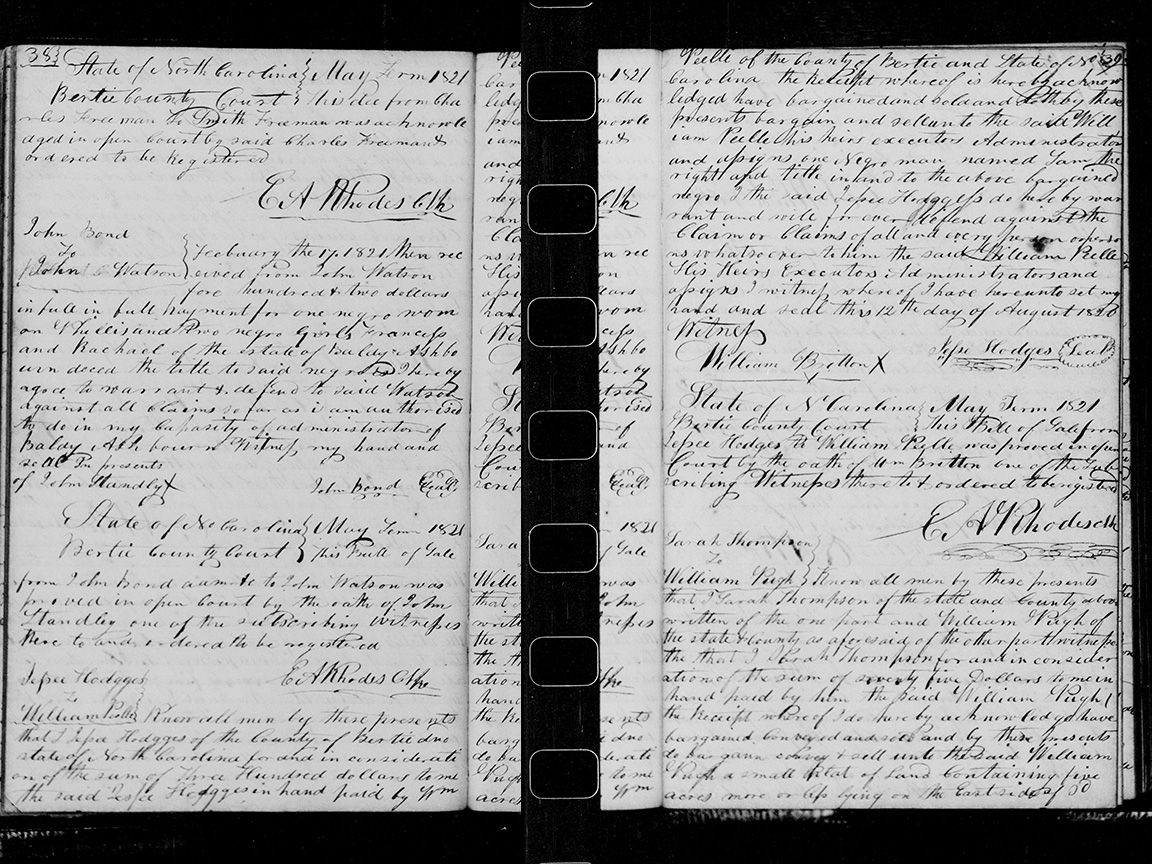 38
State of North Carolina } May Term 1821
Bertie County Court } This dee from Cha
rles Freeman to Smith Freeman was acknowle
dged in open Court by said Charles Freeman &
ordered to be Registered
E A Rhodes Clk
John Bond
To
John Watson } Feebuary the 17. 1821 then rec
eived form John Watson
fore hundred & two dollars
in full payment for one negro wom
an Phillis and two negro Girls Francess
and Rachael of the estate of Baldy Ashbo
urn deced the title to said negros I hereby
agree to warrant & defend to said Watson
against all Claims so far as i am authorised
to do in my Capasity of administrator of
Baldy Ashbourn Witness my hand and
seal In presents
of John Standly X John Bond Seal
State of No Carolina } May Term 1821
Bertie County Court } This Bill of Sale
from John Bond admr to John Watson was
proved in open Court by the oath of John
Standley one of the subscribing witnesses
there to and ordered to be registered
E A Rhodes Clk
Jesse Hodgges
To
William Peille } Know all men by these presents
that I Jesse Hodgges of the County of Bertie and
state of North Carolina for and in considerati
on of the sum of Three Hundred dollars to me
the said Jesse Hodgges in hand paid by Wm
39
Peille of the County of Bertie and State of No
Carolina the Receipt whereof is hereby acknow
ledged have bargained and sold and doth by these
presents bargain and sell unto the said Will
iam Peille his heirs executors Administrators
and assigns one Negro man named Sam the
right and title in and to the above bargained
negro I the said Jesse Hodggess do hereby war
rant and will for ever defend against the
Claim or Claims of all and every person or perso
ns whatsoever to him the said William Peille
His Heirs Executors Administrators and
assigns I witness whereof I have hereunto set my
hand and seal this 12th day of August 1820
Witness
William Britton X Jesse Hodges Seal
State of N Carolina } May Term 1821
Bertie County Court } This Bill of Sale from
Jesse Hodges to William Pylle was proved in open
Court by the oath of Wm Britton one of the Sub
scribing Witnesses thereto & ordered to be registered
E A Rhodes Clk
Sarah Thompson
To
William Pugh } Know all men by these presents
that I Sarah Thompson of the state and County above
written of the one part and William Pugh of
the state & County as aforesaid of the other part witnesse
the that I Sarah Thompson for and in consider
ation of the sum of seventy five Dollars to me in
hand paid by him the said William Pugh
the Receipt whereof I do hereby acknowledge have
bargained Conveyed and sold and by these presents
do bargann convey & sell unto the said William
Pugh a small Pital of Land Containing five
acres more or less lying on the East side of